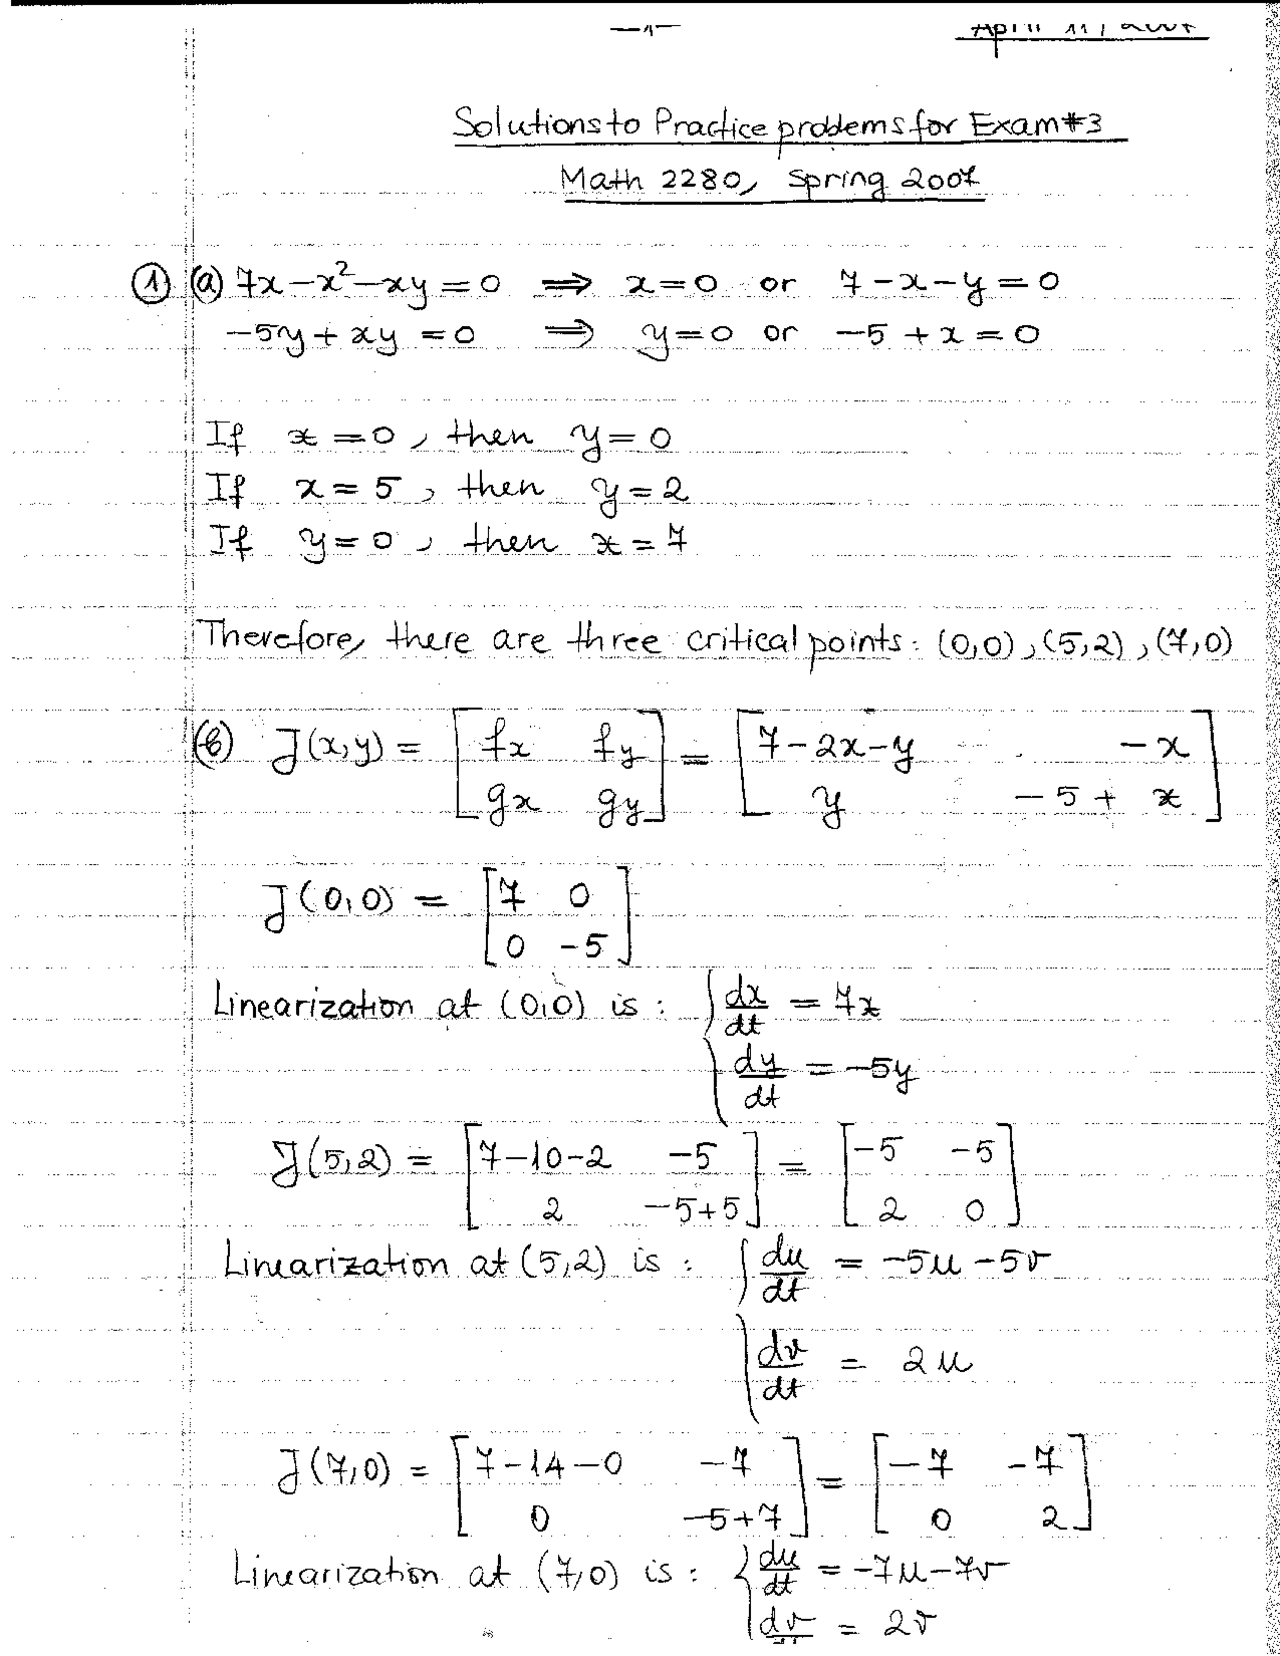 —1—
April 11, 2007
Solutions to Practice problems for Exam #3
Math 2280, Spring 2007
① (a) 7x - x² - xy = 0 ⟹ x = 0 or 7 - x - y = 0
-5y + xy = 0 ⟹ y = 0 or -5 + x = 0
If x = 0, then y = 0
If x = 5, then y = 2
If y = 0, then x = 7
Therefore, there are three critical points: (0,0), (5,2), (7,0)
(b) J(x,y) = [ fx fy ; gx gy ] = [ 7-2x-y -x ; y -5+x ]
J(0,0) = [ 7 0 ; 0 -5 ]
Linearization at (0,0) is: { dx/dt = 7x
dy/dt = -5y
J(5,2) = [ 7-10-2 -5 ; 2 -5+5 ] = [ -5 -5 ; 2 0 ]
Linearization at (5,2) is: { du/dt = -5u - 5v
dv/dt = 2u
J(7,0) = [ 7-14-0 -7 ; 0 -5+7 ] = [ -7 -7 ; 0 2 ]
Linearization at (7,0) is: { du/dt = -7u - 7v
dv/dt = 2v